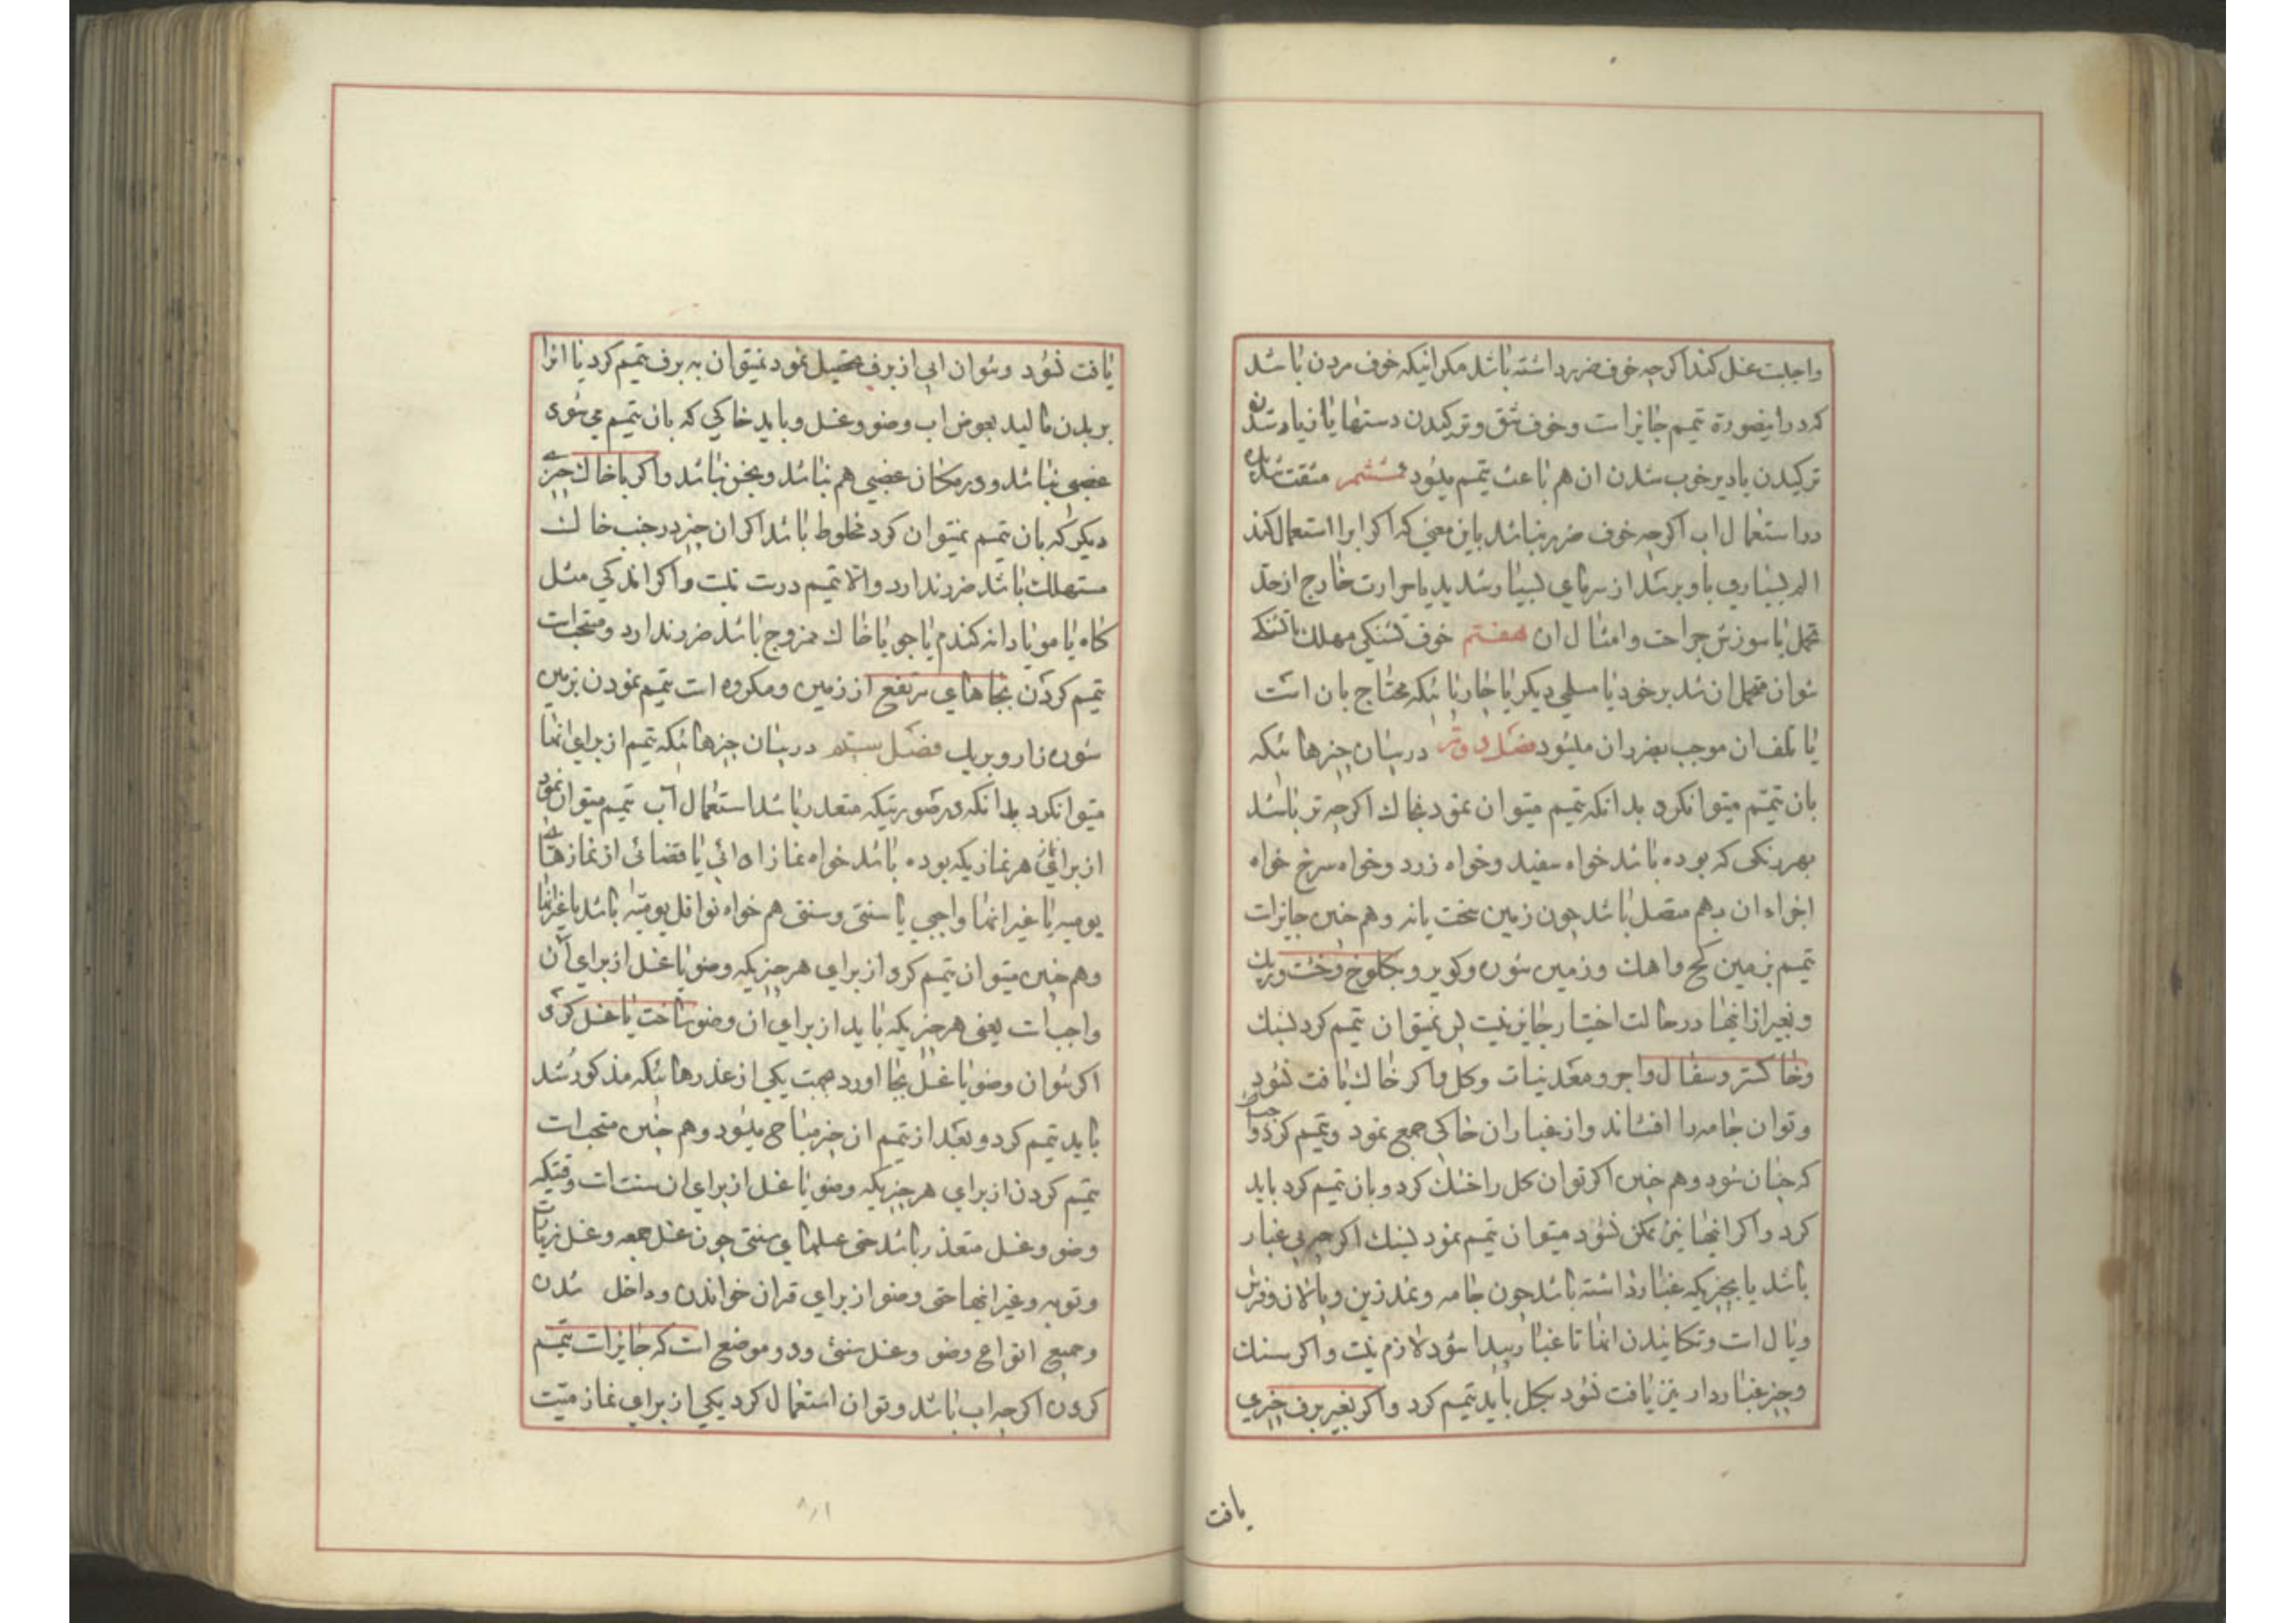 واجبست غسل کند اکرچه خوف ضرر داشته باشد مکر انیکه خوف مردن باشد
که در اینصورة تیمم جایز است و خوف شق و ترکیدن دستها یا زیاد شدن
ترکیدن یا دیر خوب شدن ان هم باعث تیمم میشود ششم مشقت شدید
در استعمال اب اکرچه خوف ضرر نباشد باین معنی که اکر ابرا استعمال کند
الم بسیاری باو برسد از سرمای بسیار شدید یا حرارت خارج از حد
تحمل یا سوزش جراحت و امثال ان هفتم خوف تشنکی مهلک یا تشنکی
نتوان متحمل ان شد بر خود یا مسلمی دیکر یا چارپائیکه محتاج بان است
یا تلف ان موجب بضرر ان میشود فصل دوم در بیان چیزهائیکه
بان تیمم میتوانکرد بدانکه تیمم میتوان نمود بخاک اکرچه تر باشد
بهر رنکی که بوده باشد خواه سفید و خواه زرد و خواه سرخ خواه
اجزاء ان بهم متصل باشد چون زمین سخت یا نه و هم چنین جایزات
تیمم بزمین کچ و اهک و زمین شوره و کویر و بکلوخ و خشت و ریک
و بغیر از اینها در حالت اختیار جایز نیست پس نمیتوان تیمم کرد بسنک
و خاکستر و سفال و اجر و معدنیات و کل و اکر خاک یافت نشود
و توان جامه را افشاند و از غبار ان خاکی جمع نمود و تیمم کرد واجبست
که چنان شود و هم چنین اکر توان کل را خشک کرد و بان تیمم کرد باید
کرد و اکر اینها نیز ممکن نشود میتوان تیمم نمود بسنک اکرچه بی غبار
باشد یا بچیزیکه غبار داشته باشد چون جامه و نمد زین و پالان و فرش
و یال است و تکانیدن انها تا غبار پیدا شود لازم نیست و اکر سنک
و چیز غباردار نیز یافت نشود بکل باید تیمم کرد و اکر بغیر برف چیزی
یافت
یافت نشود و نتوان ابی از برف تحصیل نمود نمیتوان به برف تیمم کرد یا انرا
بر بدن مالید بعوض اب وضو و غسل و باید خاکی که بان تیمم می شود
غصبی نباشد و در مکان غصبی هم نباشد و نجس نباشد و اکر با خاک چیزے
دیکر که بان تیمم نمیتوان کرد مخلوط باشد اکر ان چیز در جنب خاک
مستهلک باشد ضرر ندارد و الا تیمم درست نیست و اکر اندکی مثل
کاه یا مو یا دانه کندم یا جو با خاک ممزوج باشد ضرر ندارد و مستحب است
تیمم کردن بجاهای مرتفع از زمین و مکروه است تیمم نمودن بزمین
شوره زار و بریک فصل سیم در بیان چیزهائیکه تیمم از برای انها
میتوانکرد بدانکه در صورتیکه متعذر باشد استعمال آب تیمم میتوان نمود
از برای هر نمازیکه بوده باشد خواه نماز ادائی یا قضائی از نمازهای
یومیه یا غیر انها واجبی یا سنتی و سنتی هم خواه نوافل یومیه باشد یا غیر انها
و هم چنین میتوان تیمم کرد از برای هر چیزیکه وضو یا غسل از برای آن
واجب است یعنی هر چیزیکه باید از برای ان وضو ساخت یا غسل کرد
اکر نتوان وضو یا غسل بجا اورد بجهت یکی از عذرهائیکه مذکور شد
باید تیمم کرد و بعد از تیمم ان چیز مباح میشود و هم چنین مستحب است
تیمم کردن از برای هر چیزیکه وضو یا غسل از برای ان سنت است وقتیکه
وضو و غسل متعذر باشد حتی غسلهای سنتی چون غسل جمعه و غسل زیارت
و توبه و غیر انها حتی وضو از برای قران خواندن و داخل شدن
و جمیع انواع وضو و غسل سنتی و دو موضع است که جایز است تیمم
کردن اکرچه اب باشد و توان استعمال کرد یکی از برای نماز میت